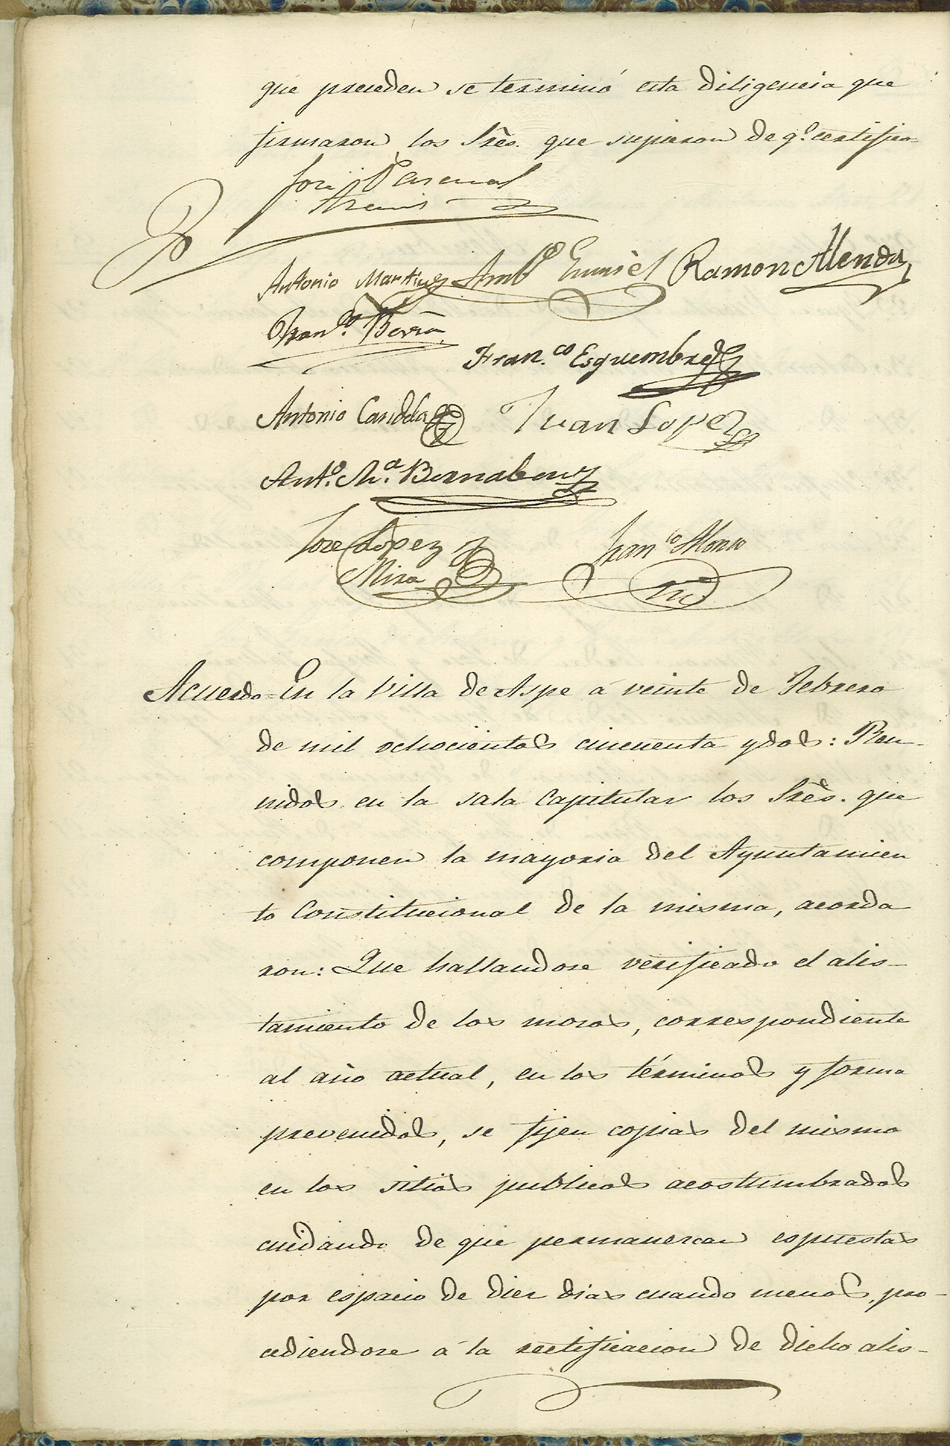 que preceden se terminó esta diligencia que
firmaron los Sres. que supieron de q.e certifico
José Pascual
Antonio Martinez Amb.o Ramon Alenda
Fran.co
Fran.co Esquembre
Antonio Juan Lopez
Ant.o M.a Bernabeu
Jose Lopez Fran.co Alonso
Mira
Acuerdo = En la Villa de Aspe á veinte de Febrero
de mil ochocientos cincuenta y dos: Reu-
nidos en la sala Capitular los Sres. que
componen la mayoria del Ayuntamien
to Constitucional de la misma, acorda
ron: Que hallandose verificado el alis-
tamiento de los mozos, correspondiente
al año actual, en los términos y forma
prevenidos, se fijen copias del mismo
en los sitios publicos acostumbrados
cuidando de que permanezcan espuestas
por espacio de diez dias cuando menos, pro-
cediendose á la rectificacion de dicho alis-